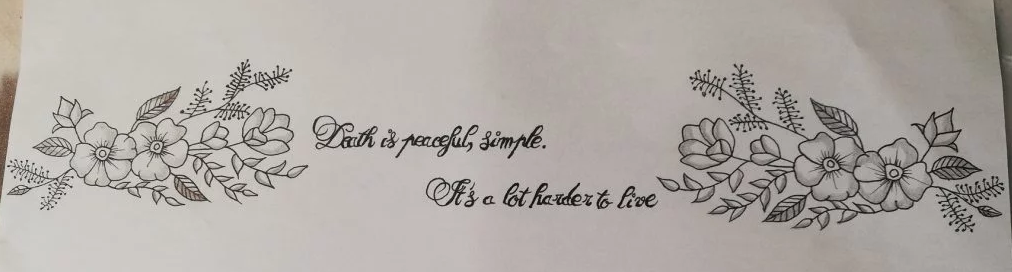 Death is peaceful, simple.
It's a lot harder to live